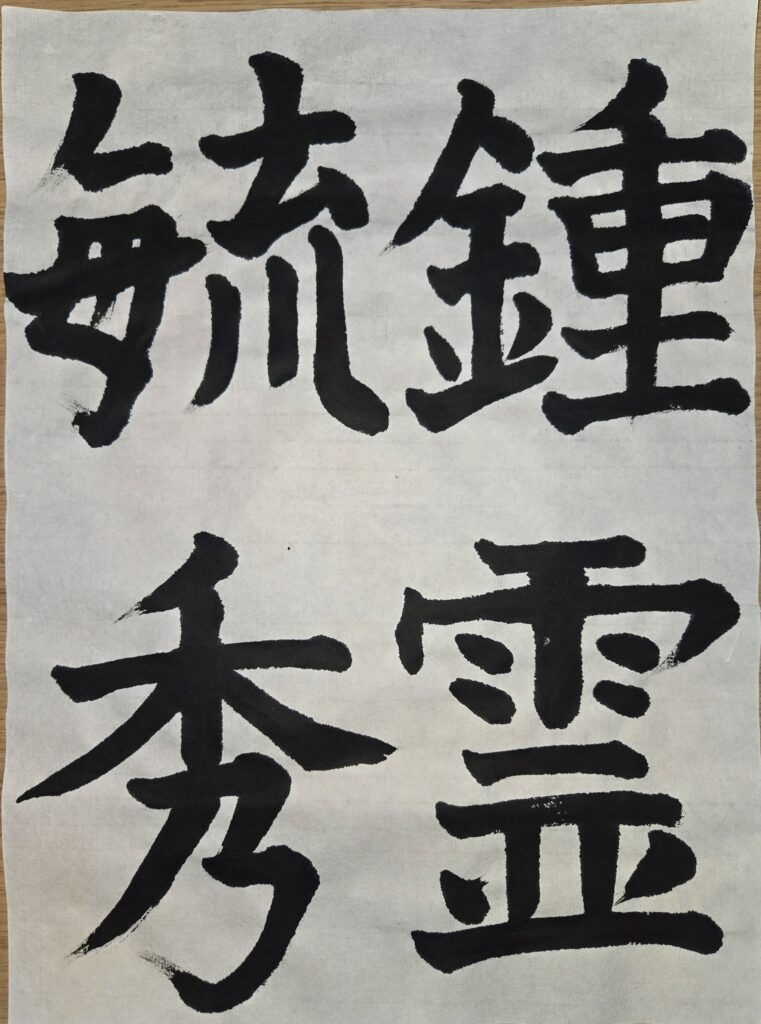 鍾霊
毓秀